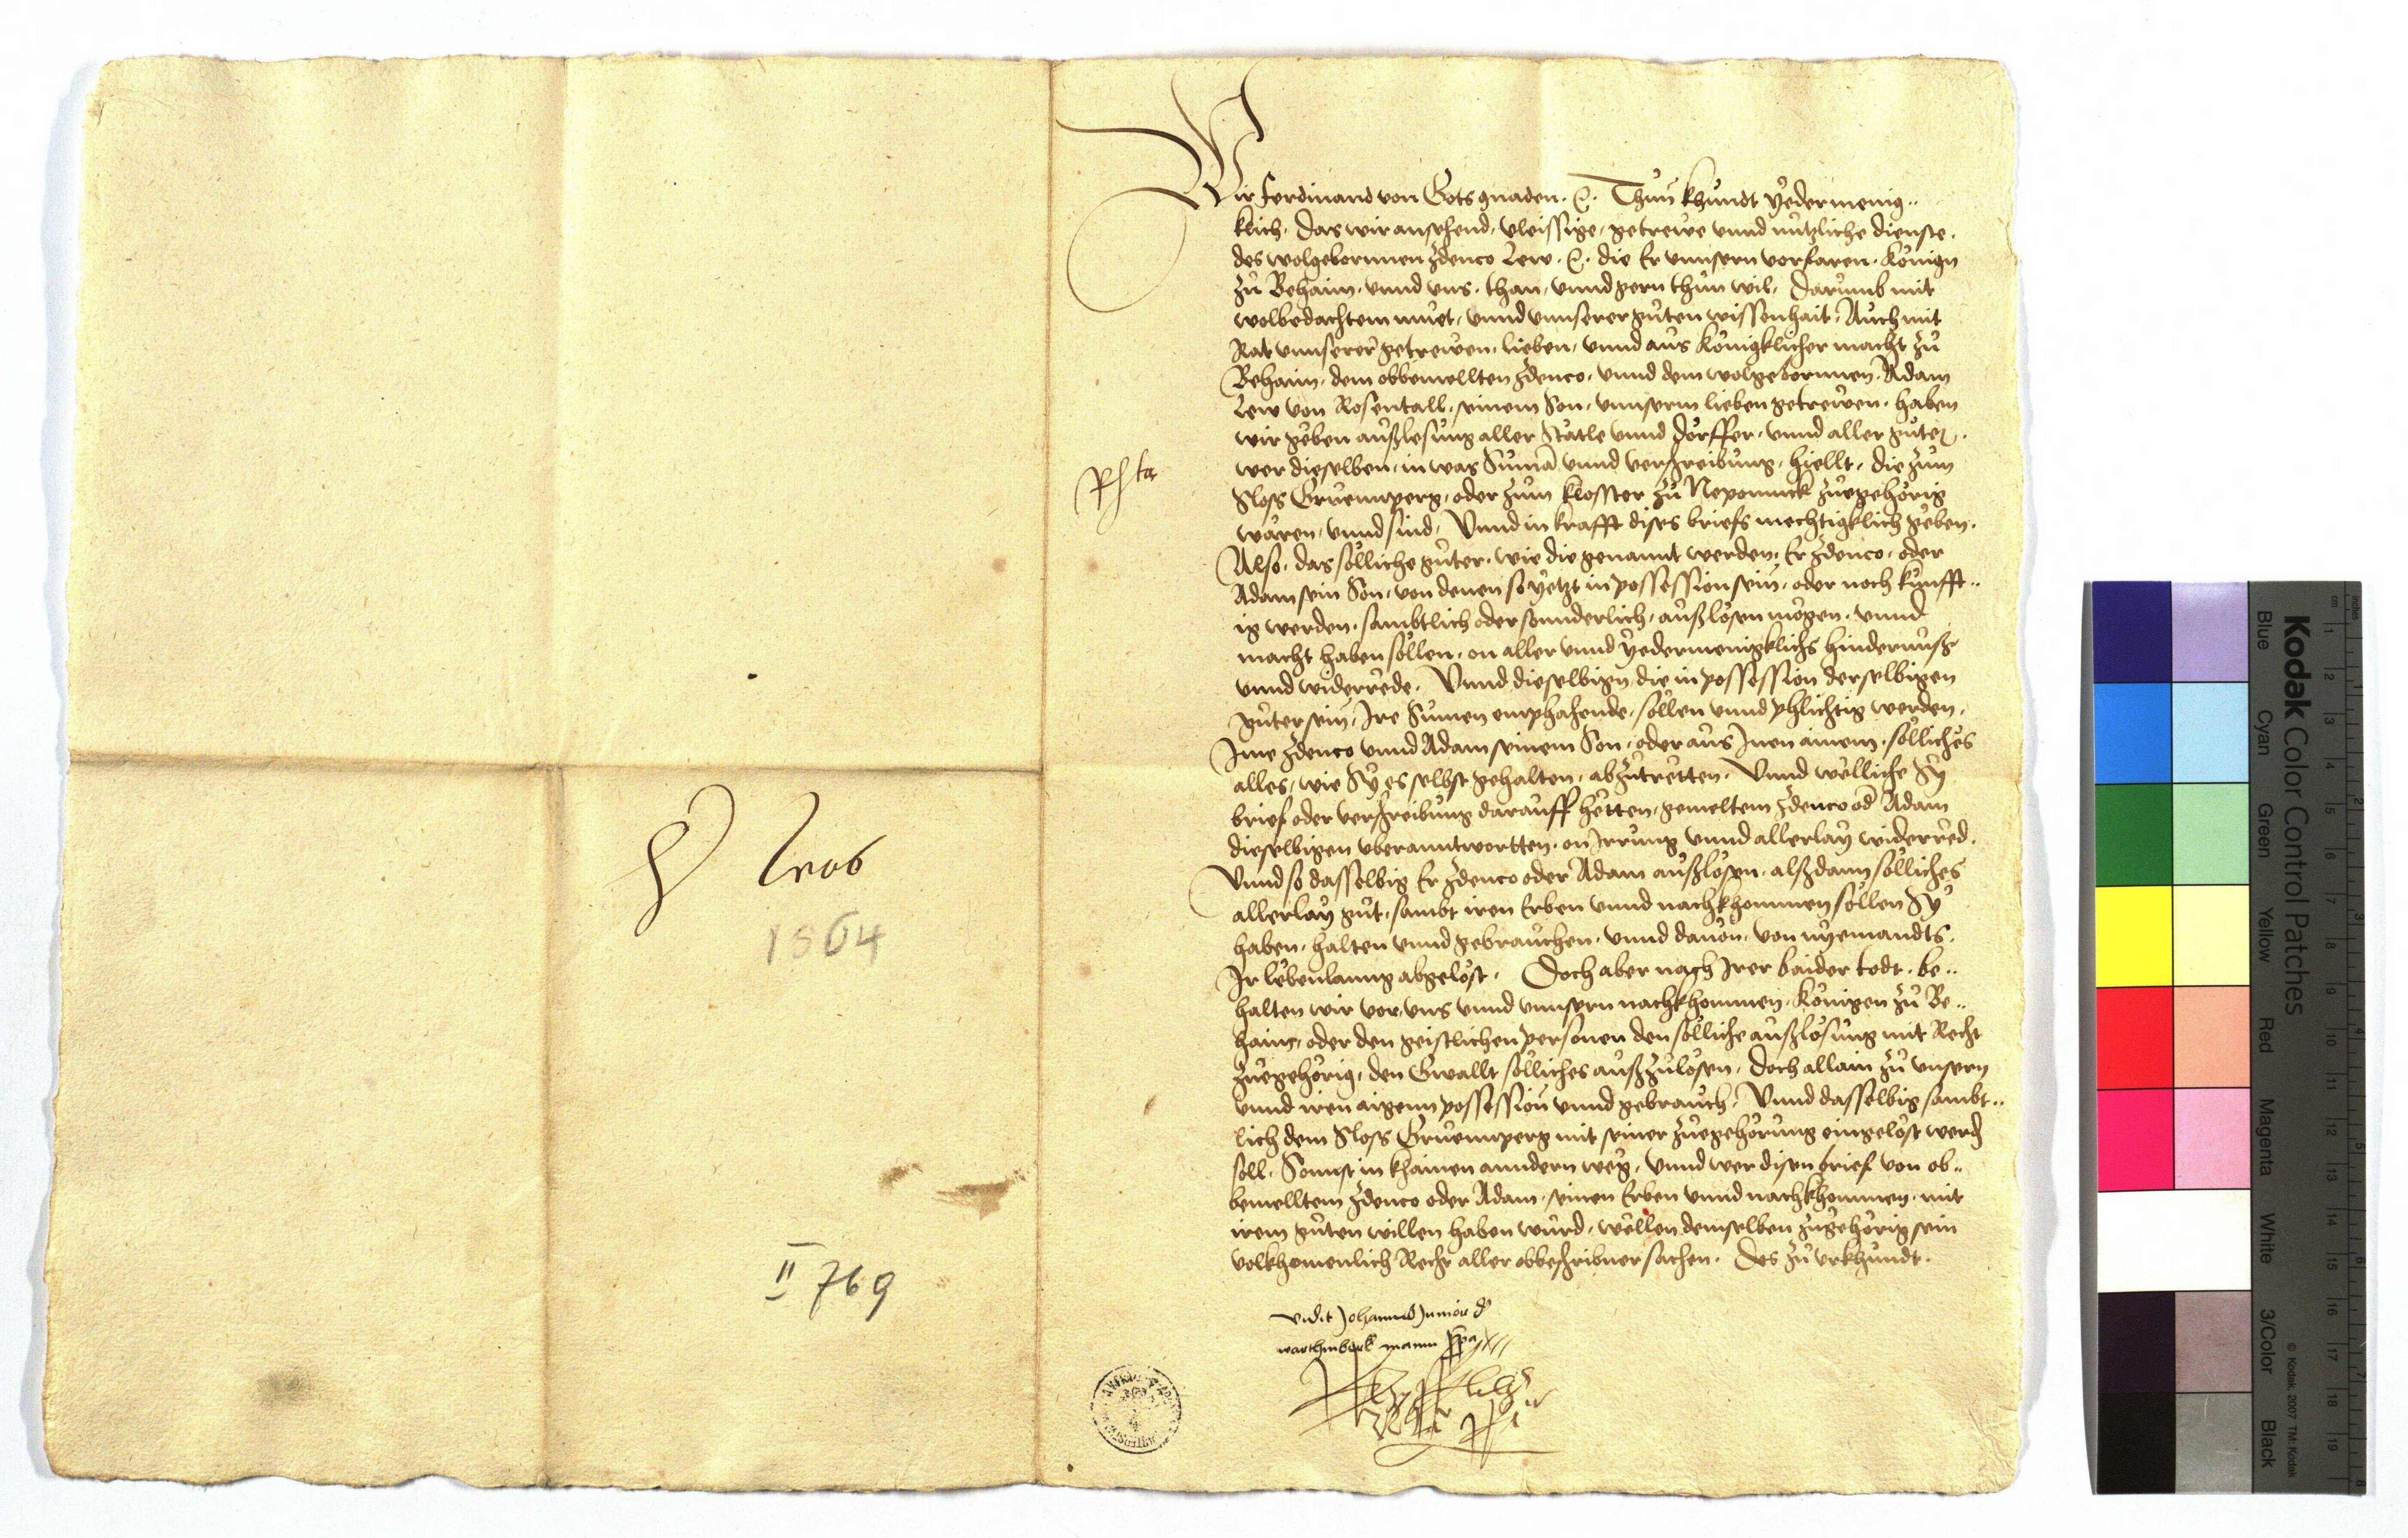 Wir Ferdinand von Gots gnaden. Thun khundt yedermenig..
klich. Das wir ansehend, vleissige, getrewe vnnd nutzliche dienste.
des wolgebornnen Zdenco Lew. die Er vnnsern vorfaren. Könign
zu Behaim. vnnd vns. than, vnnd gern thun wil. Darumb mit
wolbedachtem muet, vnnd vnnserer guten wissenhait, Auch mit
Rat vnnserer getrewen, lieben, vnnd aus Königklicher macht zu
Behaim. dem obbemellten Zdenco, vnnd dem wolgebornnen Adam
Lew von Rosentall, seinem Son, vnnserm lieben getrewen. haben
wir geben außlesung aller Stätle vnnd dörffer, vnnd aller guter.
wer dieselben, in was Suma vnnd verschreibung, hiellt, die zum
Sloss Gruennperg, oder zum kloster zu Nepomuck zuegehörig
wären, vnnd sind, Vnnd in krafft dises briefs mechtigklich geben.
Also, das sölliche güter, wie die genannt werden, Er Zdenco, oder
Adam sein Son, von denen so yetzt in possession sein, oder noch künfft..
ig werden, sambtlich oder sonnderlich, außlösen mögen, vnnd
macht haben söllen, on aller vnnd yedermenigklichs hindernuß
vnnd widerrede. Vnnd dieselbign die in possession derselbigen
güter sein, Ire Sumen emphahende, söllen vnnd phlichtig werden,
Ime Zdenco vnnd Adam seinem Son, oder aus Inen ainem, sölliches
alles, wie Sy es selbst gehalten, abzutretten. Vnnd welliche Sy
brief oder verschreibung darauff hetten, gemeltem Zdenco od Adam
dieselbigen vberanntwortten, on Irrung vnnd allerlay widerred.
Vnnd so dasselbig Er Zdenco oder Adam außlösen, alßdann sölliches
allerlay gut, sambt iren Erben vnnd nachkhommen söllen Sy
haben, halten vnnd gebrauchen, vnnd dauon, von nyemandts.
Ir lebenlanng abgelöst. Doch aber nach Irer baider todt. be..
halten wir vor, vns vnnd vnnsern nachkhommen, Königen zu Be..
haim, oder den geistlichen personen den sölliche außlösung mit Recht
zuegehörig, den Gwallt sölliches außzulösen, doch allain zu vnsern
vnnd iren aignen possession vnnd gebrauch, Vnnd dasselbig sambt..
lich dem Sloss Gruennperg mit seiner zuegehörung eingelöst werd
soll. Sonnst in khainen anndern weg, vnnd wer disen brief von ob..
bemelltem Zdenco oder Adam, seinen Erben vnnd nachkhommen, mit
irem guten willen haben wurd, wellen demselben zugehörig sein
volkhomenlich Recht aller obbeschribner sachen. Des zu vrkhundt.
vidit Johannes Junior d
warthmberk manu
1864
II 769
Kodak Color Control Patches
Blue Cyan Green Yellow Red Magenta White 3/Color Black
© Kodak, 2007 TM: Kodak